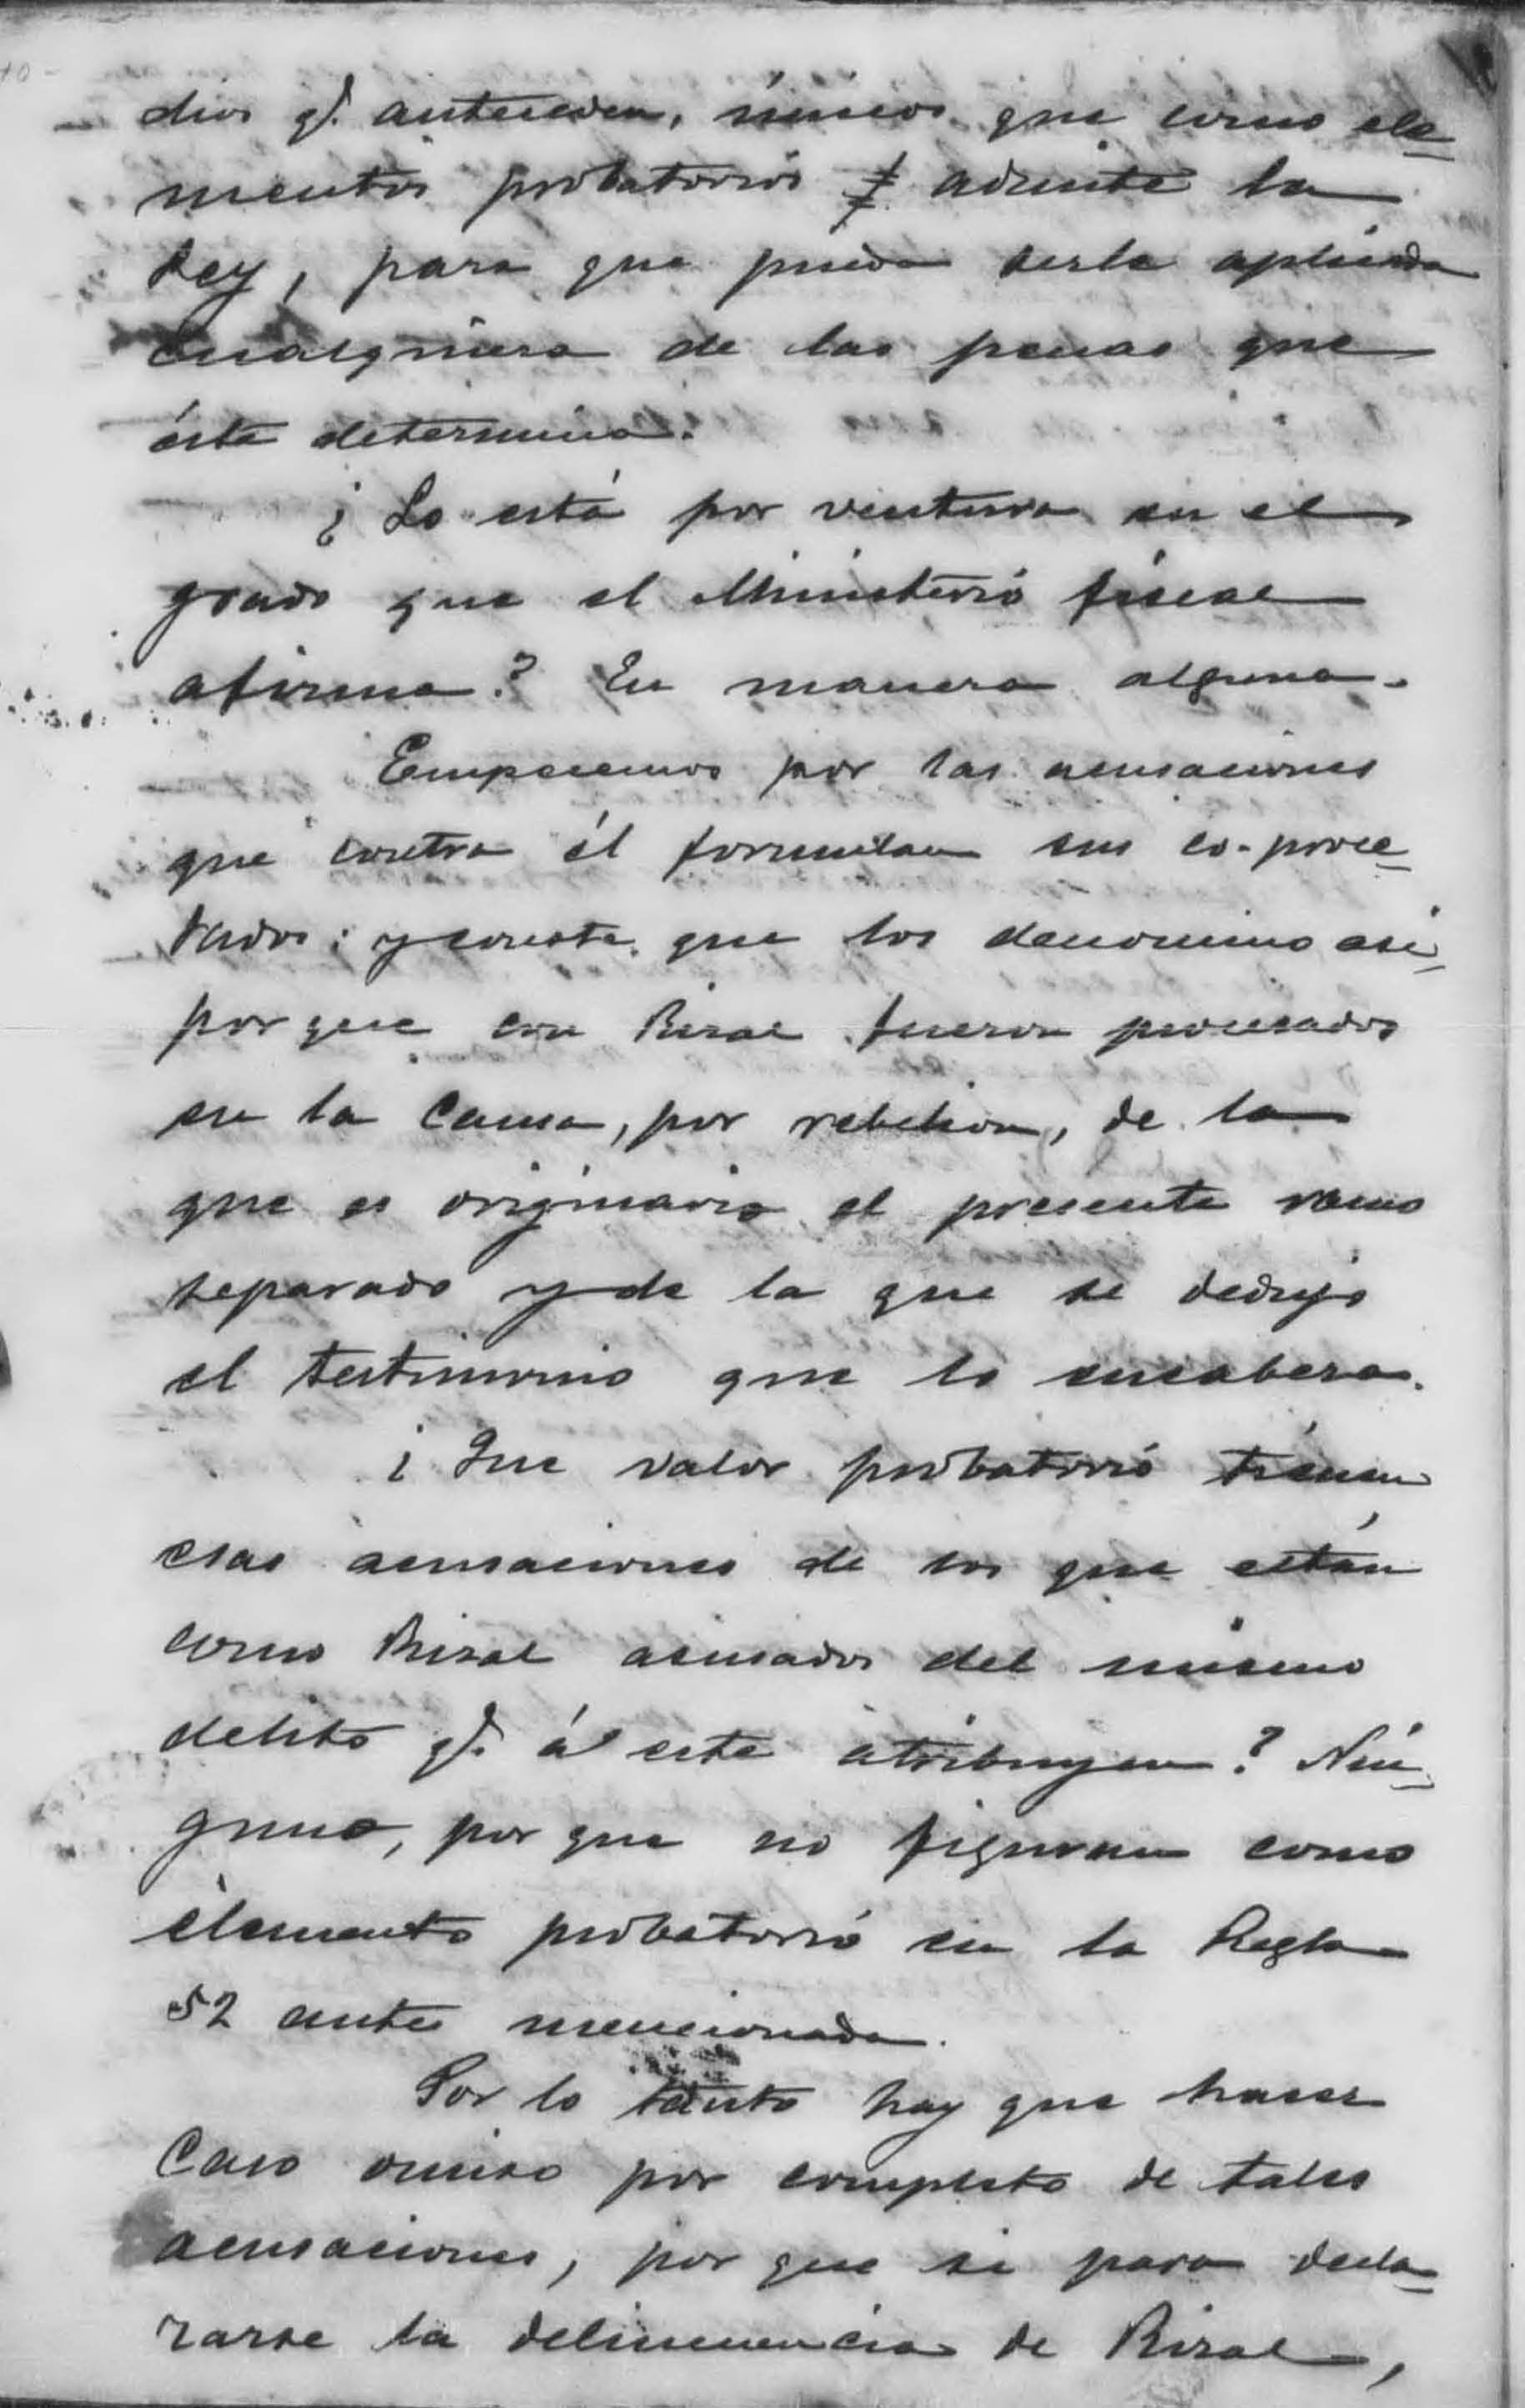 dios q̃. anteceden, únicos que como ele-
mentos probatorios admite la
Ley, para que pueda serle aplicada
cualquiera de las penas que
ésta determina.
¿Lo está por ventura en el
grado que el Ministerio fiscal
afirma? En manera alguna.
Empecemos por las acusaciones
que contra él formulan sus co-proce-
sados: y conste que los denomino así
por que con Rizal fueron procesados
en la Causa, por rebelion, de la
que es originario el presente ramo
separado y de la que se dedujo
el testimonio que lo encabeza.
¿Que valor probatorio tienen
esas acusaciones de los que están
como Rizal acusados del mismo
delito q̃. á este atribuyen? Nin-
guno, por que no figuran como
elemento probatorio en la Regla
52 antes mencionada.
Por lo tanto hay que hacer
Caso omiso por completo de tales
acusaciones, por que si para decla-
rarse la delincuencia de Rizal,